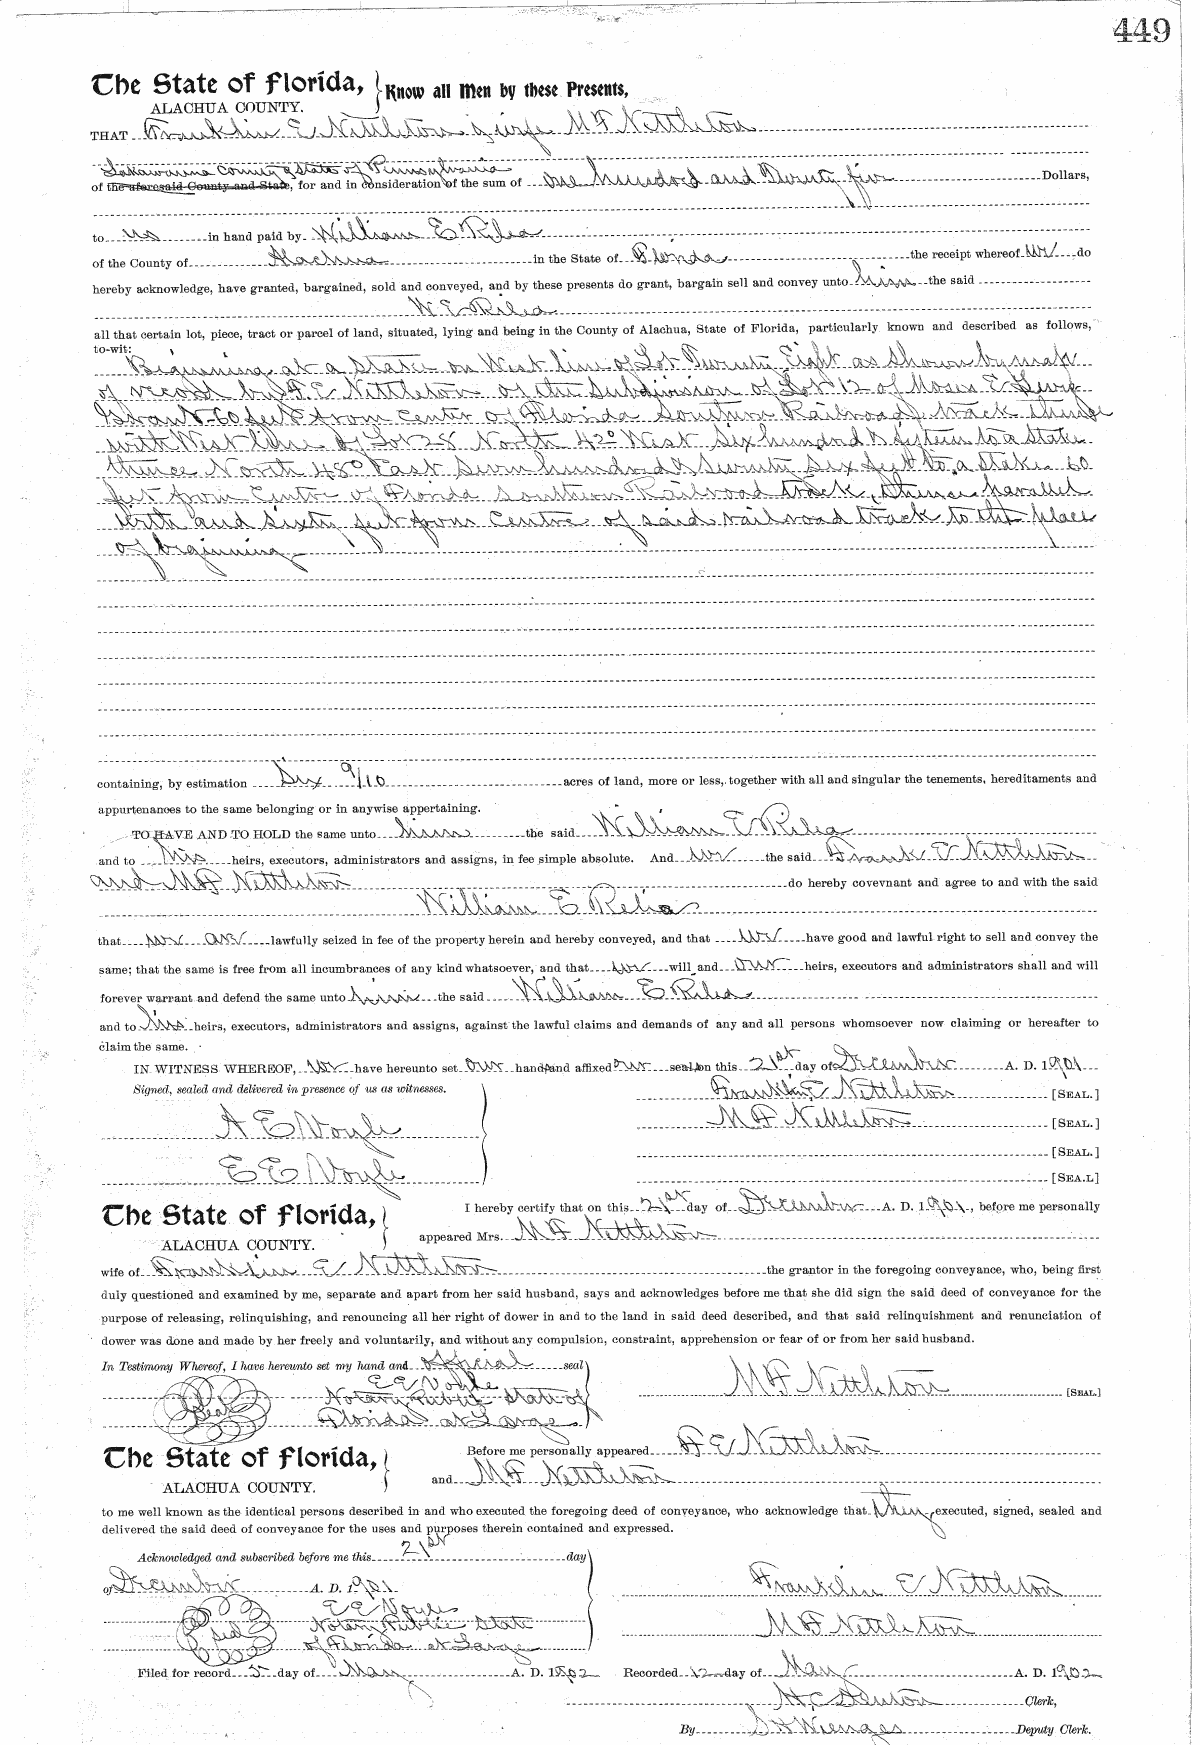 449
The State of Florida, Know all Men by these Presents,
ALACHUA COUNTY.
THAT Franklin E Nettleton & wife M F Nettleton
Lakawanna County & State of Pennsylvania
of the aforesaid County and State, for and in consideration of the sum of One hundred and Twenty five Dollars,
to us in hand paid by William E Rilea
of the County of Alachua in the State of Florida the receipt whereof we do
hereby acknowledge, have granted, bargained, sold and conveyed, and by these presents do grant, bargain sell and convey unto him the said
W E Rilea
all that certain lot, piece, tract or parcel of land, situated, lying and being in the County of Alachua, State of Florida, particularly known and described as follows,
to-wit:
Beginning at a Stake on West line of Lot Twenty Eight as shown by map
of record by F E Nettleton of the Subdivision of Lot 12 of Moses E Levy
Grant 60 feet from center of Florida Southern Railroad track thence
with West line of Lot 28 North 42° West Six hundred & fifteen to a Stake
thence North 48° East Seven hundred & Seventy Six feet to a stake 60
feet from Centre of Florida Southern Railroad track, thence parallel
with and sixty feet from Centre of said railroad track to the place
of beginning
containing, by estimation Six 9/10 acres of land, more or less, together with all and singular the tenements, hereditaments and
appurtenances to the same belonging or in anywise appertaining.
TO HAVE AND TO HOLD the same unto him the said William E Rilea
and to his heirs, executors, administrators and assigns, in fee simple absolute. And we the said Frank E Nettleton
and M F Nettleton do hereby covevnant and agree to and with the said
William E Relia
that we are lawfully seized in fee of the property herein and hereby conveyed, and that we have good and lawful right to sell and convey the
same; that the same is free from all incumbrances of any kind whatsoever, and that we will and our heirs, executors and administrators shall and will
forever warrant and defend the same unto him the said William E Rilea
and to his heirs, executors, administrators and assigns, against the lawful claims and demands of any and all persons whomsoever now claiming or hereafter to
claim the same.
IN WITNESS WHEREOF, we have hereunto set our hand and affixed our seal on this 21st day of December A. D. 1901
Signed, sealed and delivered in presence of us as witnesses. Franklin E Nettleton [SEAL.]
A E Voyle M F Nettleton [SEAL.]
[SEAL.]
E E Voyle [SEA.L]
The State of Florida, I hereby certify that on this 21st day of December A. D. 1901, before me personally
ALACHUA COUNTY. appeared Mrs. M F Nettleton
wife of Franklin E Nettleton the grantor in the foregoing conveyance, who, being first
duly questioned and examined by me, separate and apart from her said husband, says and acknowledges before me that she did sign the said deed of conveyance for the
purpose of releasing, relinquishing, and renouncing all her right of dower in and to the land in said deed described, and that said relinquishment and renunciation of
dower was done and made by her freely and voluntarily, and without any compulsion, constraint, apprehension or fear of or from her said husband.
In Testimony Whereof, I have hereunto set my hand and official seal
E E Voyle M F Nettleton [SEAL]
Seal Notary Public State of
Florida at Large
The State of Florida, Before me personally appeared F E Nettleton
ALACHUA COUNTY. and M F Nettleton
to me well known as the identical persons described in and who executed the foregoing deed of conveyance, who acknowledge that they executed, signed, sealed and
delivered the said deed of conveyance for the uses and purposes therein contained and expressed.
Acknowledged and subscribed before me this 21st day
of December A. D. 1901 Franklin E Nettleton
E E Voyle
Seal Notary Public State M F Nettleton
of Florida at Large
Filed for record 5 day of May A. D. 1902 Recorded 12 day of May A. D. 1902
H C Denton Clerk,
By S H Wienges Deputy Clerk.